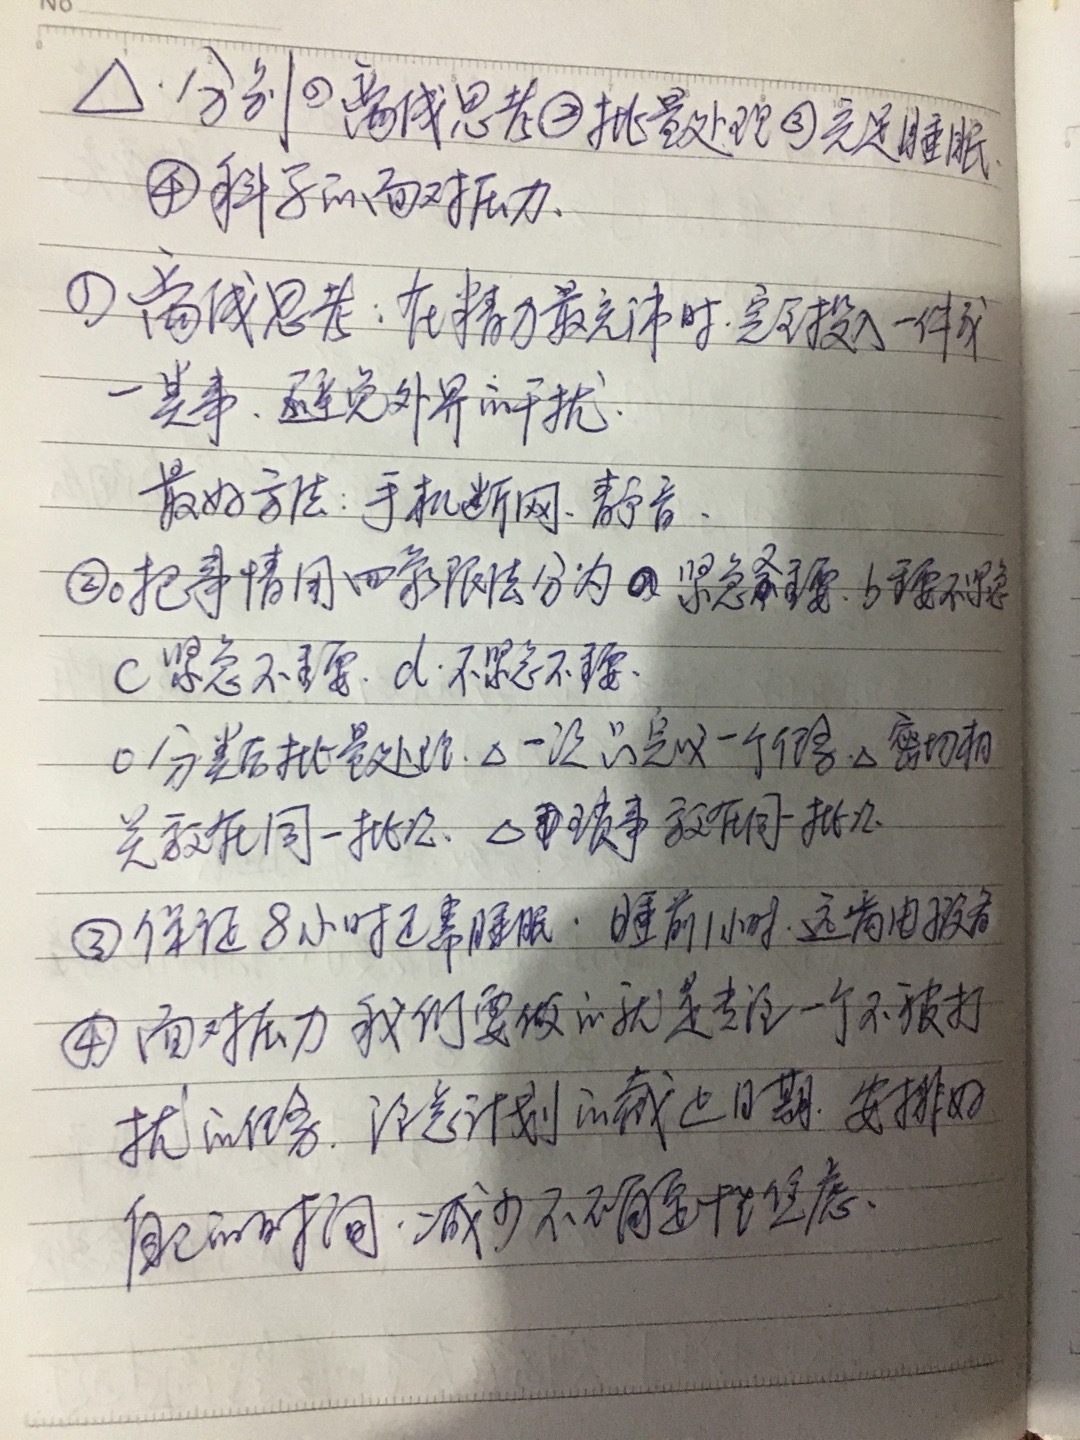 No
△.分别①离线思考②批量处理③充足睡眠.
④科学的面对压力.
① 离线思考:在精力最充沛时.完全投入一件或
一类事.避免外界的干扰.
最好方法:手机断网.静音.
②。把事情用四象限法分为 a 紧急重要. b 重要不紧急
c 紧急不重要. d.不紧急不重要.
○分类后批量处理.△一次只完成一个任务.△密切相
关放在同一批次. △ 琐事放在同一批次.
③ 保证8小时正常睡眠. 睡前1小时.远离电子设备
④ 面对压力 我们要做的就是专注一个不被打
扰的任务. 注意计划的截止日期. 安排好
自己的时间.减少不确定性焦虑.